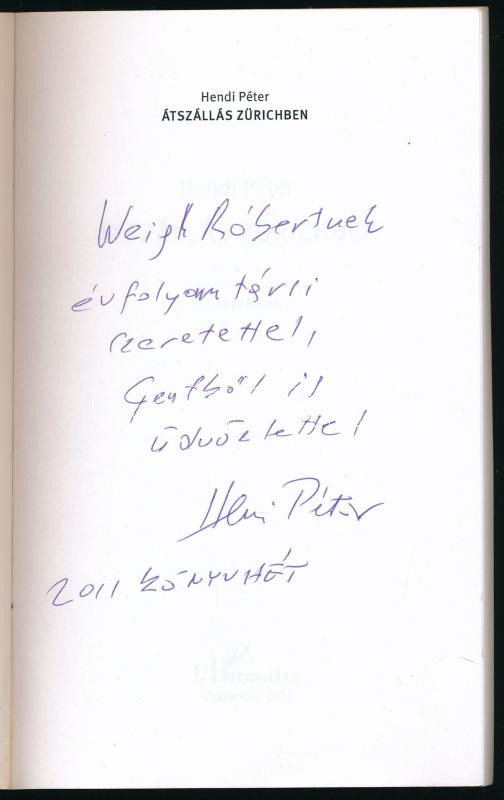 Hendi Péter
ÁTSZÁLLÁS ZÜRICHBEN
Weigh Róbertnek
évfolyamtársi
szeretettel,
Genfből is
üdvözlettel
Hendi Péter
2011 KÖNYVHÉT
L'Harmattan
Budapest, 2011